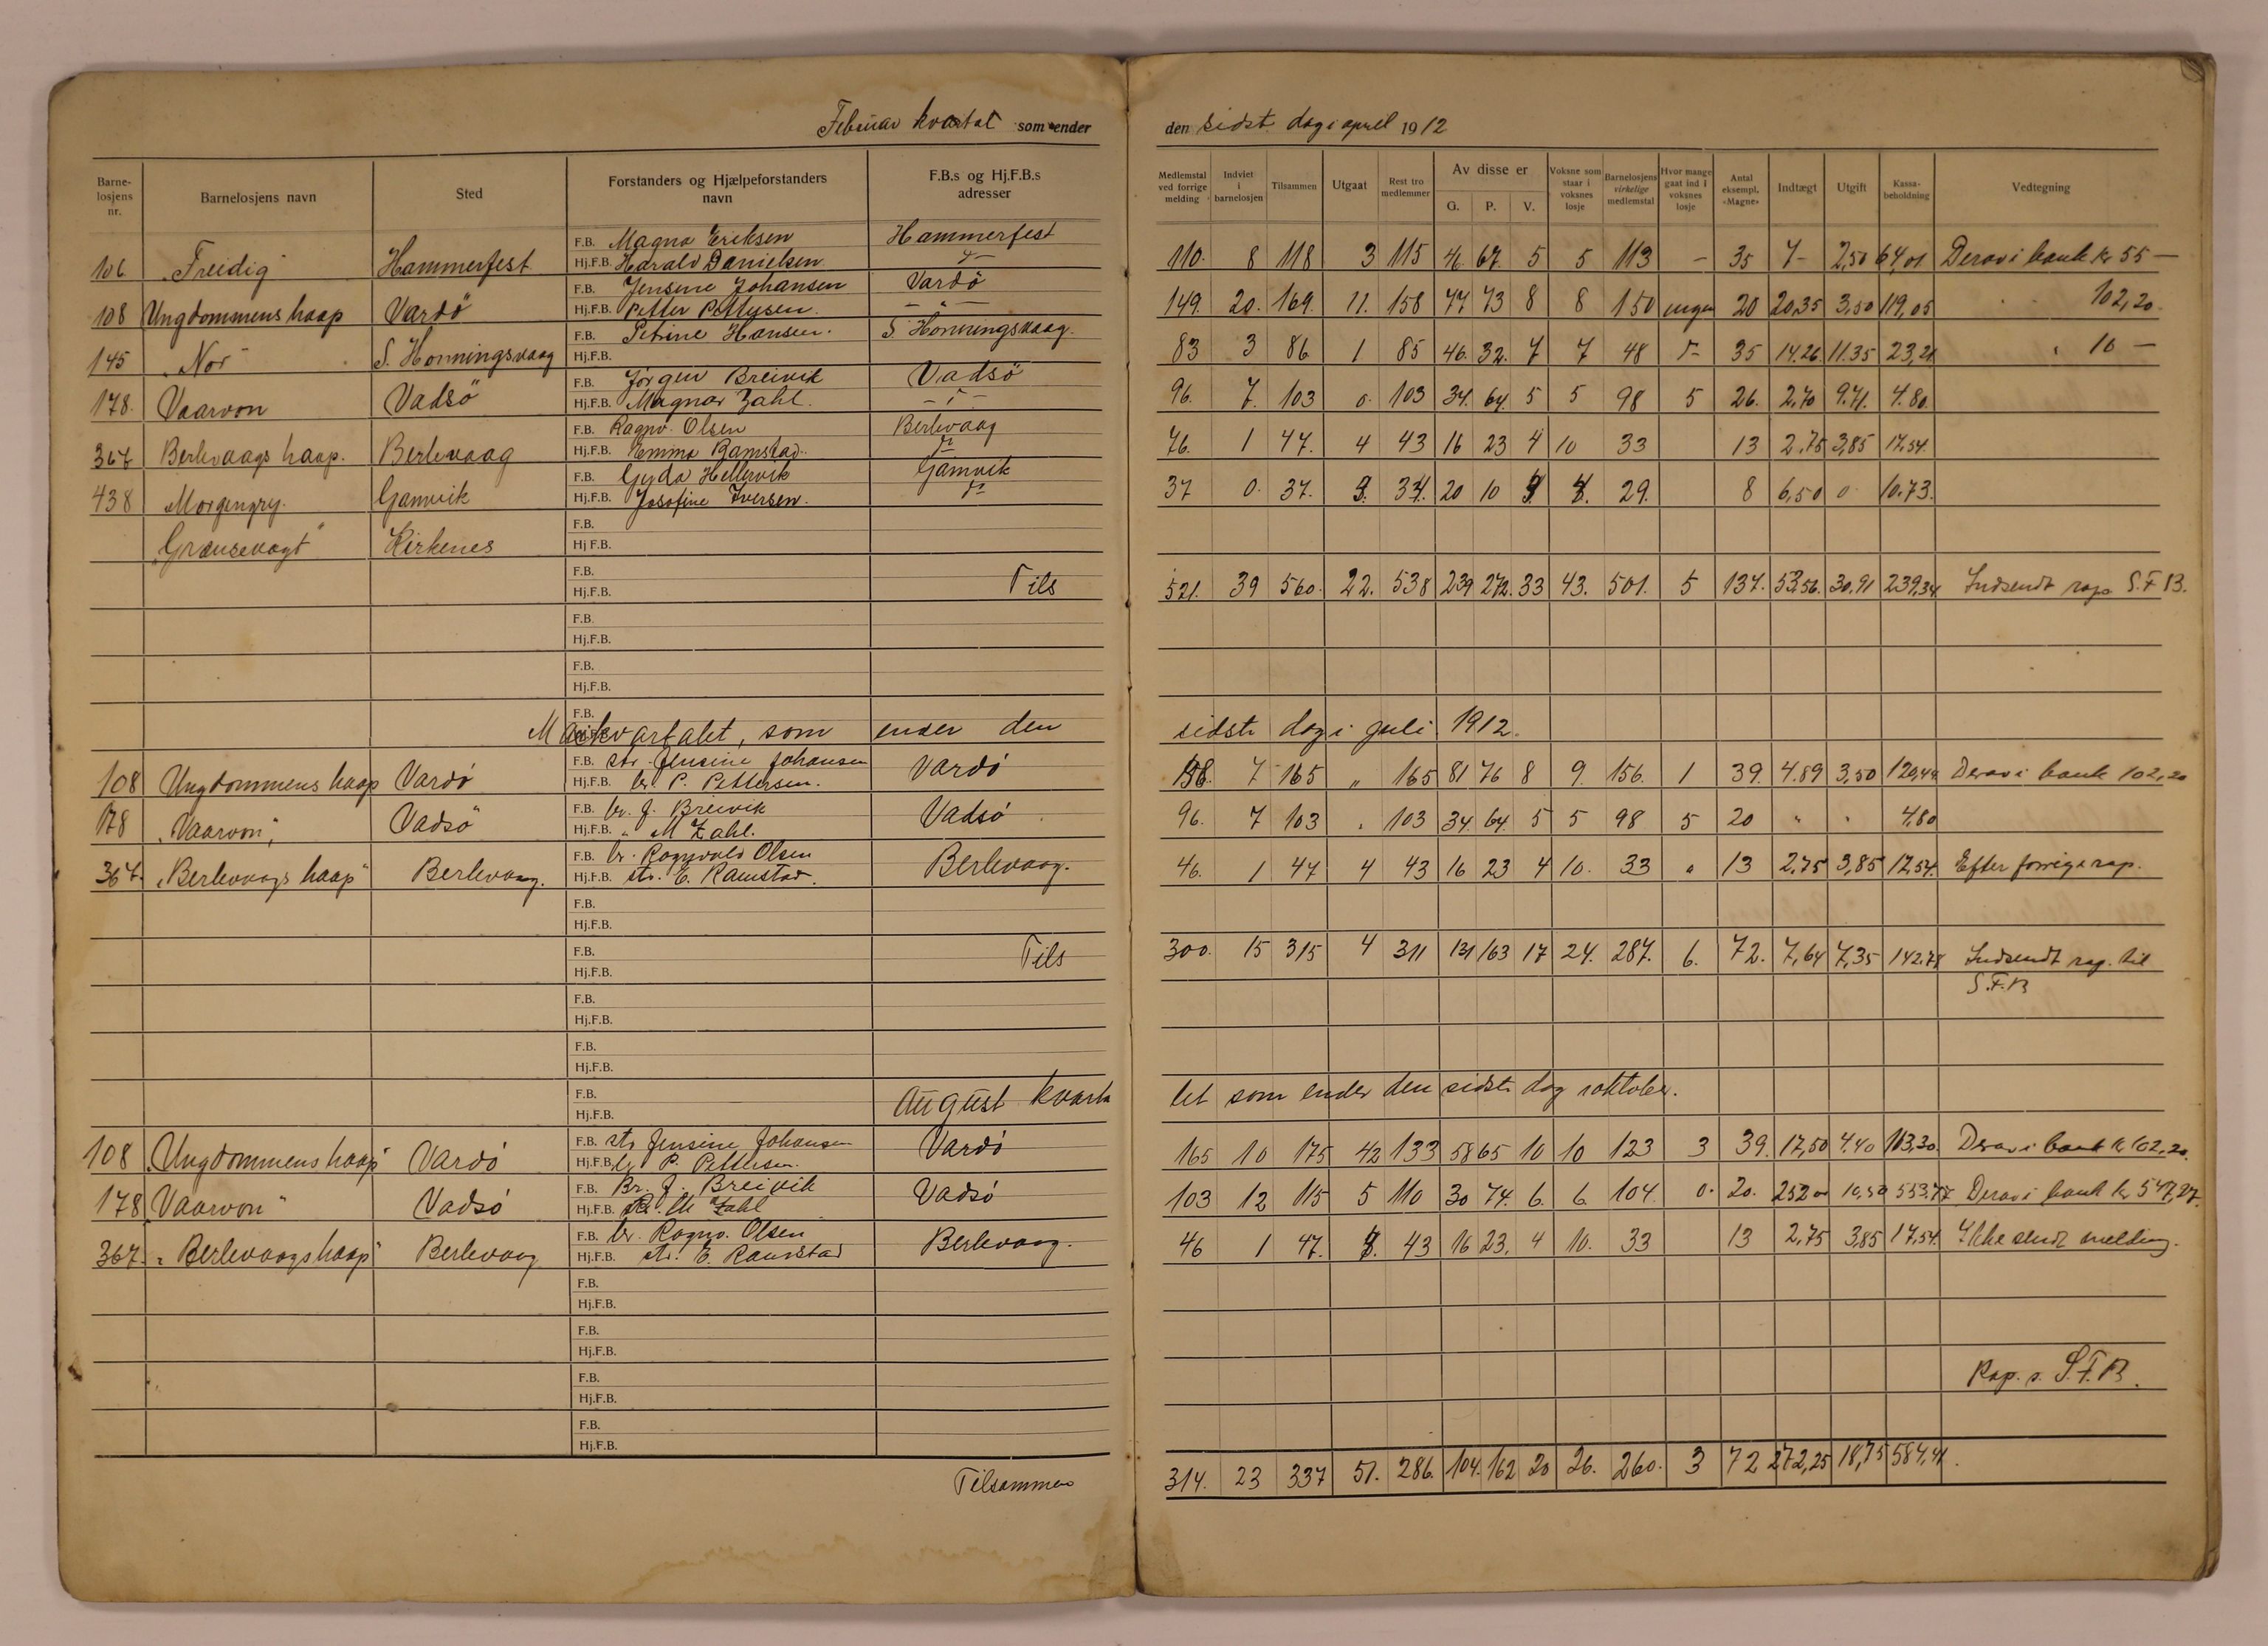 Februar kvartal som ender den sidste dag i april 1912
Barne-losjens nr. Barnelosjens navn Sted Forstanders og Hjælpeforstanders navn F.B.s og Hj.F.B.s adresser Medlemstal ved forrige melding Indviet i barnelosjen Tilsammen Utgaat Rest tro medlemmer Av disse er G. P. V. Voksne som staar i voksnes losje Barnelosjens virkelige medlemstal Hvor mange gaat ind i voksnes losje Antal eksempl. «Magne» Indtægt Utgift Kassa-beholdning Vedtegning
F.B. Magna Eriksen Hammerfest
106 "Freidig" Hammerfest Hj.F.B. Harald Danielsen 110. 8 118 3 115 46 67 5 5 113 - 35 7- 2,50 64,01 Derav i bank kr 55 —
F.B. Jensine Johansen Vardö
108 Ungdommens haap Vardö Hj.F.B. Petter Pettersen. — " — 149. 20. 169. 11. 158 77 73 8 8 150 ingen 20 20,35 3,50 119,05 " 102,20.
F.B. Petrine Hansen. S. Honningsvaag.
145 "Nor" S. Honningsvaag Hj.F.B. 83 3 86 1 85 46. 32. 7 7 48 35 14.26. 11.35 23,21 " 10 —
F.B. Jørgen Breivik Vadsö
178. Vaarvon Vadsö Hj.F.B. Magnar Zahl. — " — 96. 7. 103 0. 103 34. 64. 5 5 98 5 26. 2,70 9.71. 4.80.
F.B. Ragnv. Olsen Berlevaag
367 Berlevaags haap. Berlevaag Hj.F.B. Emma Ramstad. 46. 1 47. 4 43 16 23 4 10 33 13 2,75 3,85 17,54.
F.B. Gyda Hellervik Gamvik
438 Morgengry. Gamvik Hj.F.B. Josefine Iversen. 37 0. 37. 3. 34. 20 10 4 8. 29. 8 6,50 0 10.73.
F.B.
"Grænsevagt" Kirkenes Hj F.B.
F.B.
Hj.F.B. Tils 521. 39 560. 22. 538 239 272. 33 43. 501. 5 137. 53,56. 30,91 239,34 Indsendt rap. S.F.B.
F.B.
Hj.F.B.
F.B.
Hj.F.B.
F.B.
Maikvartalet, som ender den sidste dag i juli 1912.
F.B. str. Jensine Johansen
108 Ungdommens haap Vardö Hj.F.B. br. P. Pettersen. Vardö 158. 7 165 „ 165 81 76 8 9. 156. 1 39. 4.89 3,50 120,44 Derav i bank 102,20
F.B. br. J. Breivik
178 "Vaarvon" Vadsö Hj.F.B. „ M Zahl. Vadsö 96. 7 103 „ 103 34. 64. 5 5 98 5 20 " " 4,80
F.B. br. Ragnvald Olsen
367. "Berlevaags haap" Berlevaag. Hj.F.B. str. E. Ramstad. Berlevaag. 46. 1 47 4 43 16 23 4 10. 33 " 13 2,75 3,85 17,54. Efter forrige rap.
F.B.
Hj.F.B.
F.B.
Hj.F.B. Tils 300. 15 315 4 311 131 163 17 24. 287. 6. 72. 7,64 7,35 142.78 Indsendt rap. til S.F.B
F.B.
Hj.F.B.
F.B.
Hj.F.B.
F.B.
Hj.F.B. August kvartalet som ender den sidste dag i oktober.
F.B. str Jensine Johansen
108 "Ungdommens haap" Vardö Hj.F.B. br P. Pettersen. Vardö 165 10 175 42 133 58 65 10 10 123 3 39. 17,50 4.40 103,30. Derav i bank kr 102,20.
F.B. Br. J. Breivik
178 "Vaarvon" Vadsö Hj.F.B. Br. M Zahl Vadsö 103 12 115 5 110 30 74. 6. 6. 104. 0. 20. 252 00 10,50 553.77 Derav i bank kr 547,27.
F.B. br. Ragnv. Olsen
367. "Berlevaagshaap" Berlevaag Hj.F.B. str. E. Ramstad Berlevaag. 46 1 47. 4. 43 16 23. 4 10. 33 13 2,75 3,85 17,54. Ikke sendt melding.
F.B.
Hj.F.B.
F.B.
Hj.F.B.
F.B.
Hj.F.B. Rap. s. S.F.B.
F.B.
Hj.F.B.
Tilsammen 314. 23 337 51. 286. 104. 162 20 26. 260. 3 72 272,25 18,75 584,41.